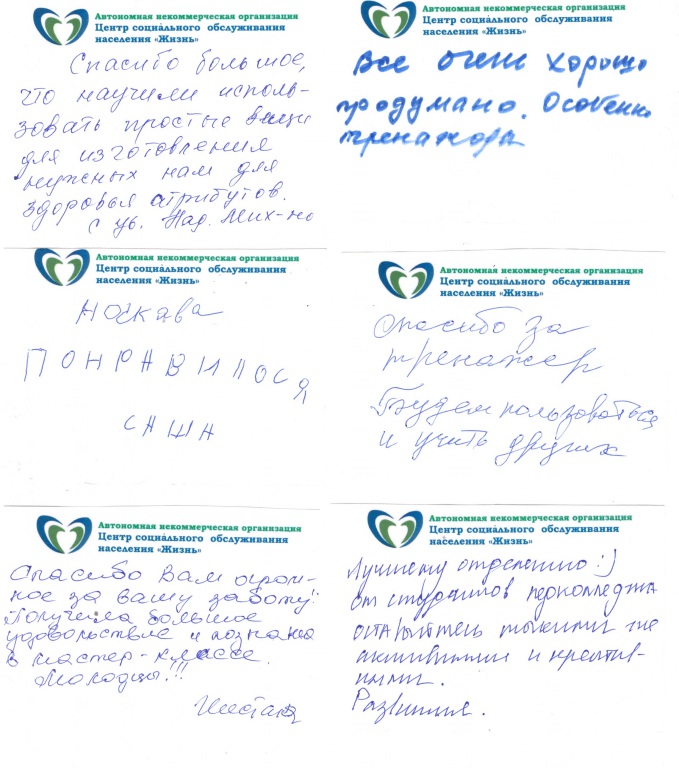 Автономная некоммерческая организация
Центр социального обслуживания
населения «Жизнь»
Спасибо большое,
что научили исполь-
зовать простые вещи
для изготовления
нужных нам для
здоровья атрибутов.
с ув. Над. Мих-на
Автономная некоммерческая организация
Центр социального обслуживания
населения «Жизнь»
Все очень хорошо
продумано. Особенно
тренажора
Автономная некоммерческая организация
Центр социального обслуживания
населения «Жизнь»
Носкава
ПОНРАВИЛОСЯ
САША
Автономная некоммерческая организация
Центр социального обслуживания
населения «Жизнь»
Спасибо за
тренажер
Будем пользоваться
и учить других
Автономная некоммерческая организация
Центр социального обслуживания
населения «Жизнь»
Спасибо Вам огром-
ное за вашу заботу!
Получила большое
удовольствие и познания
в мастер-классе.
Молодцы!!!
Автономная некоммерческая организация
Центр социального обслуживания
населения «Жизнь»
Лучшему отделению :)
от студентов педколледжа
оставайтесь такими же
активными и креатив-
ными.
Развития.